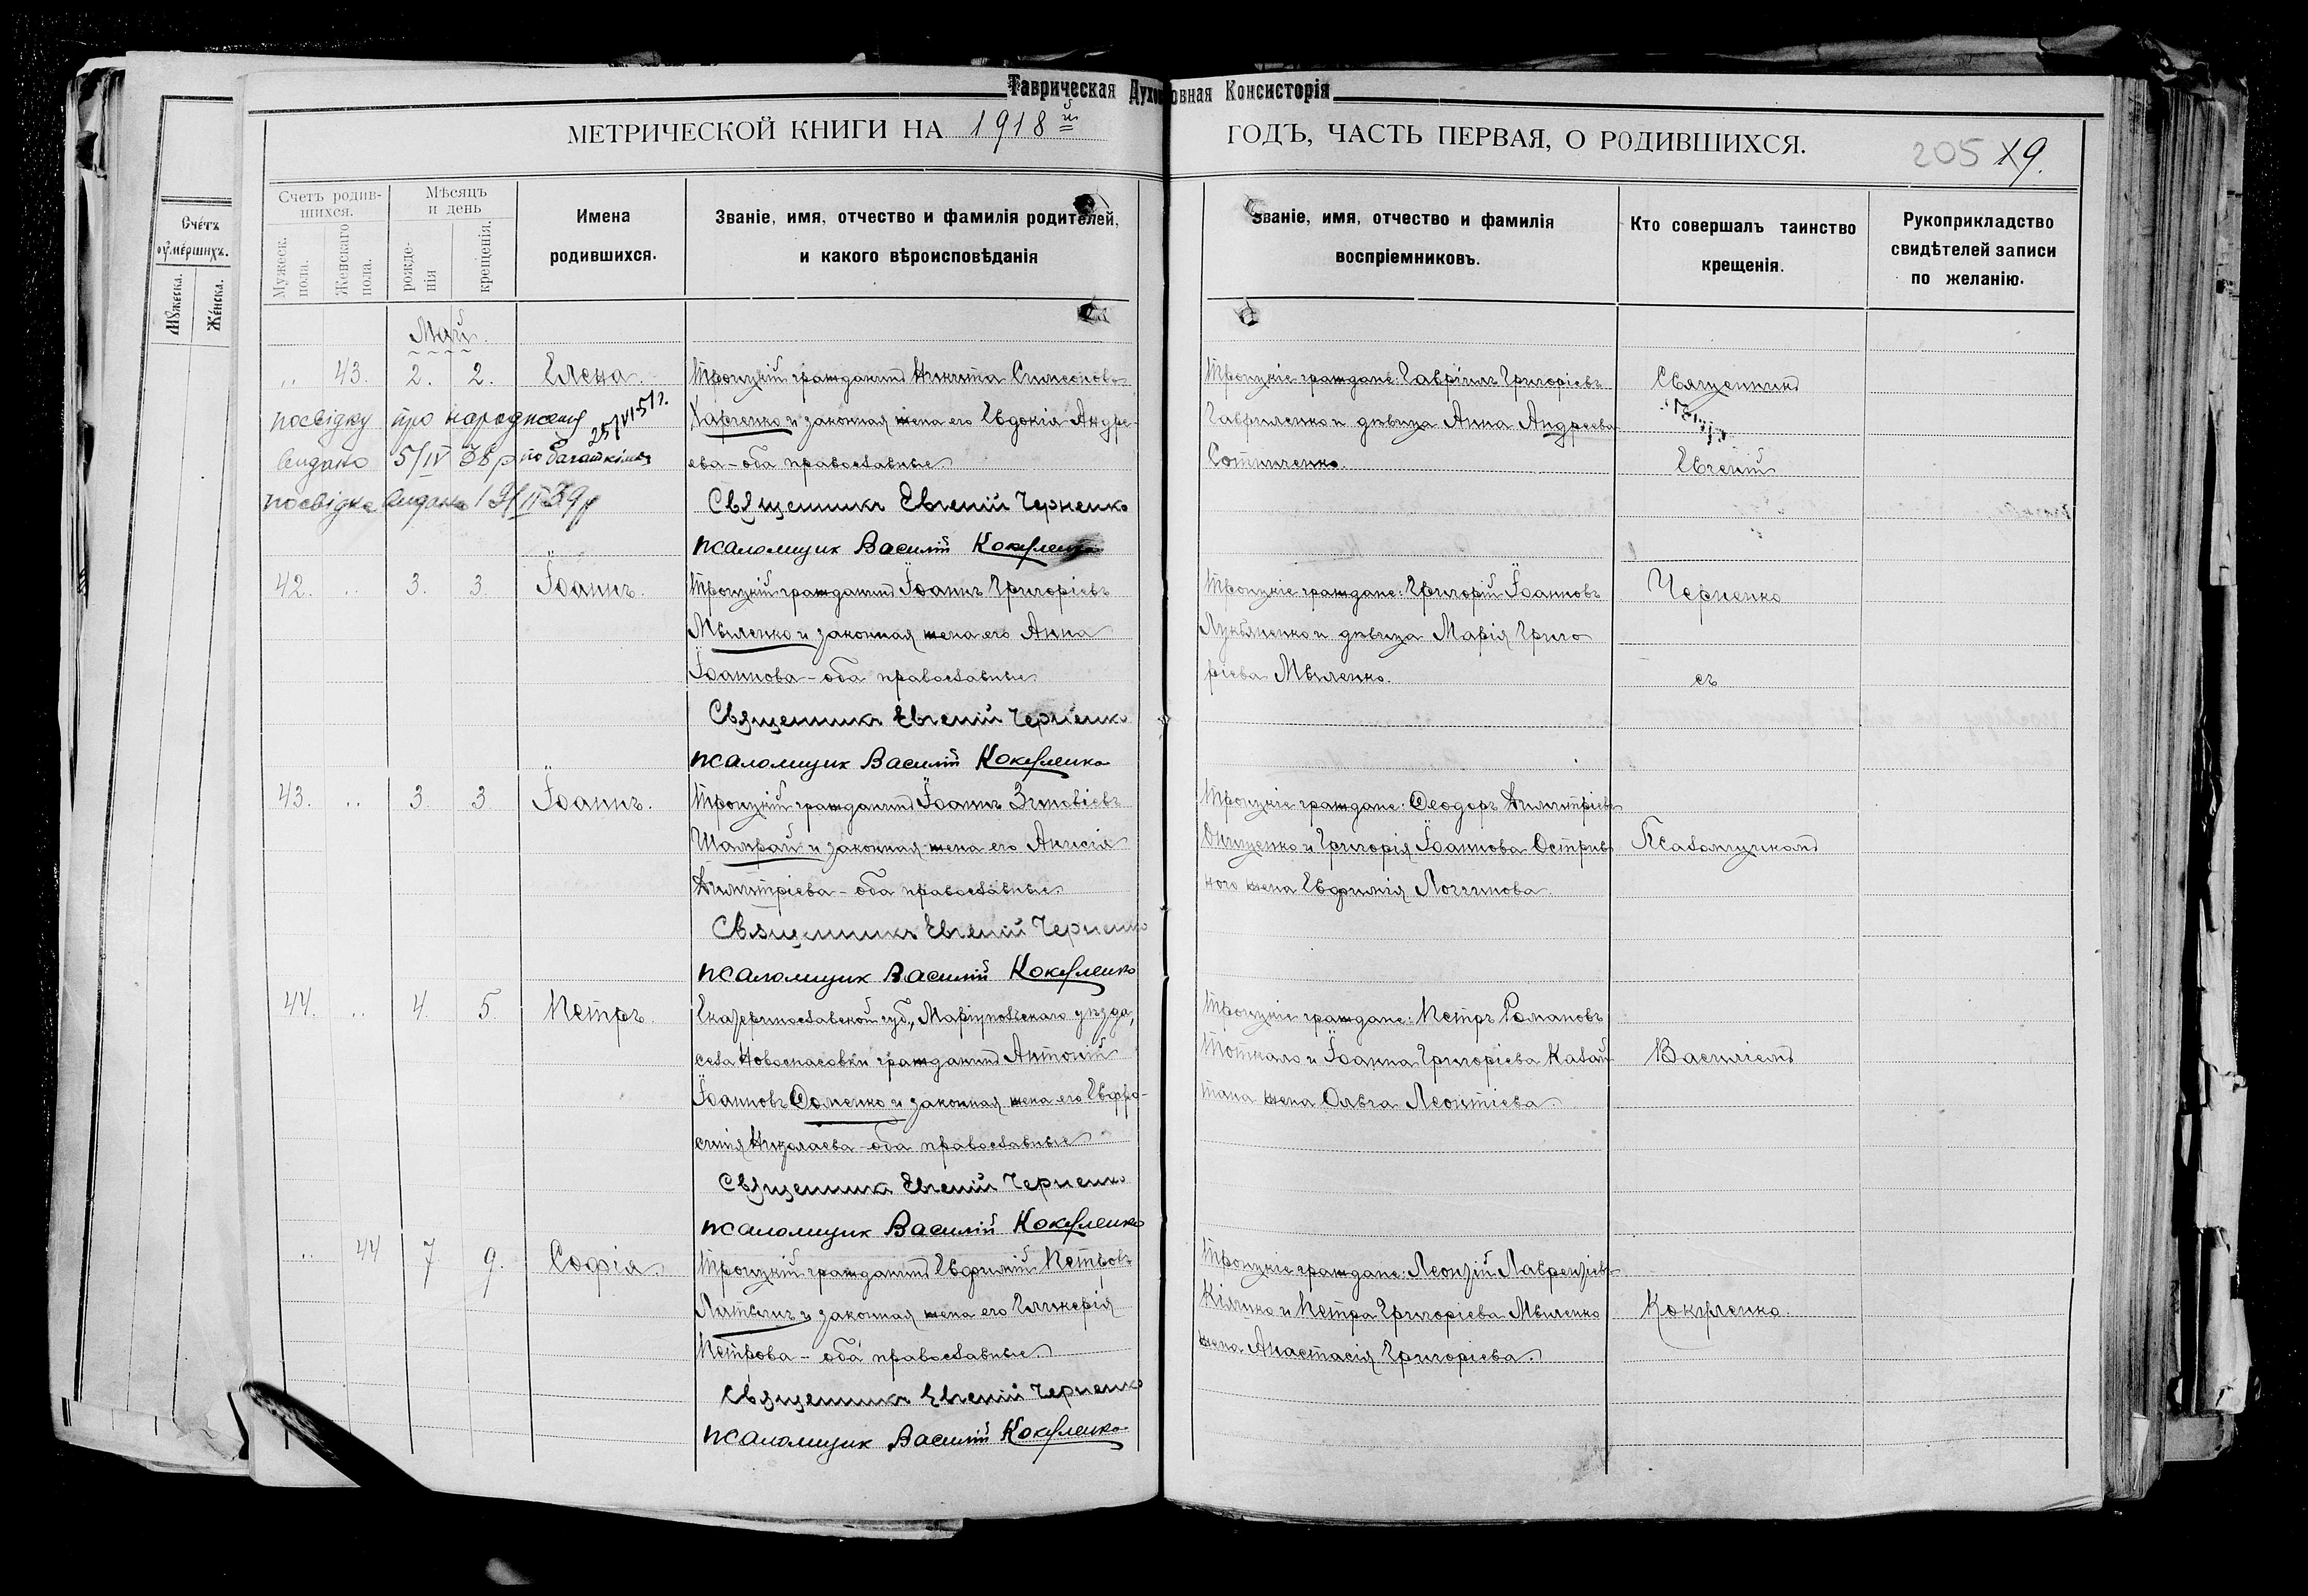 Таврическая Духовная Консисторія
МЕТРИЧЕСКОЙ КНИГИ НА 1918й ГОДЪ, ЧАСТЬ ПЕРВАЯ, О РОДИВШИХСЯ.
205 19.
Счетъ умершихъ.
Мужеска.
Женска.
Счетъ родив-
шихся.
Мужеск. пола.
Женскаго пола.
Мѣсяцъ
и день
рожде-
нія
крещенія.
Имена
родившихся.
Званіе, имя, отчество и фамилія родителей,
и какого вѣроисповѣданія
Званіе, имя, отчество и фамилія
воспріемниковъ.
Кто совершалъ таинство
крещенія.
Рукоприкладство
свидѣтелей записи
по желанію.
Май.
,, 43. 2. 2. Елена.
Троицкій гражданинъ Никита Симеоновъ
Харченко и законная жена его Евдокія Андре-
ева - оба православные
Священникъ Евгеній Черненко
псаломщик Василій Кокуленко
посвідку про народження
видано 5/IV 38 р
25/VI 51 г.
посвідка видана 19/IV 39 р
Троицкіе граждане: Гавріилъ Григорьевъ
Гавриленко и дѣвица Анна Андреева
Сотниченко.
Священникъ
Евгеній
42. ,, 3. 3. Іоаннъ.
Троицкій гражданинъ Іоаннъ Григорьевъ
Мѣленко и законная жена его Анна
Іоаннова - оба православные
Священникъ Евгеній Черненко
псаломщик Василій Кокуленко
Троицкіе граждане: Григорій Іоанновъ
Лукьяненко и дѣвица Марія Григо
ріева Мѣленко.
Черненко
съ
43. ,, 3. 3. Іоаннъ.
Троицкій гражданинъ Іоаннъ Зиновіевъ
Шамрай и законная жена его Анисія
Димитріева - оба православные
Священникъ Евгеній Черненко
псаломщик Василій Кокуленко
Троицкіе граждане: Ѳеодоръ Димитріевъ
Онищенко и Григорія Іоаннова Острив
ного жена Евфимія Логгинова.
Псаломщикомъ
44. ,, 4. 5. Петръ.
Екатеринославской губ., Маріупольскаго уѣзда,
села Новоспасовки гражданинъ Антоній
Іоанновъ Ѳоменко и законная жена его Евфро-
синія Николаева - оба православные
Священник Евгеній Черненко
псаломщик Василій Кокуленко
Троицкіе граждане: Петръ Романовъ
и Іоанна Григорьева
жена Ольга Леонтіева.
Василіемъ
,, 44 7 9. Софія.
Троицкій гражданинъ Евфимій Петровъ
Литвинъ и законная жена его Гликерія
Петрова - оба православные
Священникъ Евгеній Черненко
псаломщик Василій Кокуленко
Троицкіе граждане: Леонтій Лаврентіевъ
и Петра Григоріева Мѣленко
жена Анастасія Григоріева.
Кокуленко.